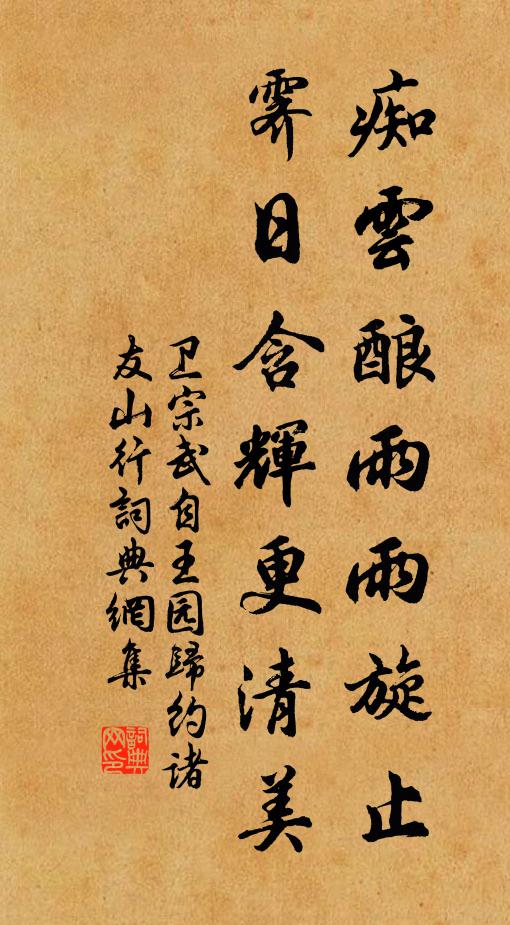 痴雲酿雨雨旋止
霽日含輝更清美
卫宗武自王园歸约诸
友山行詞典網集
詞典网印